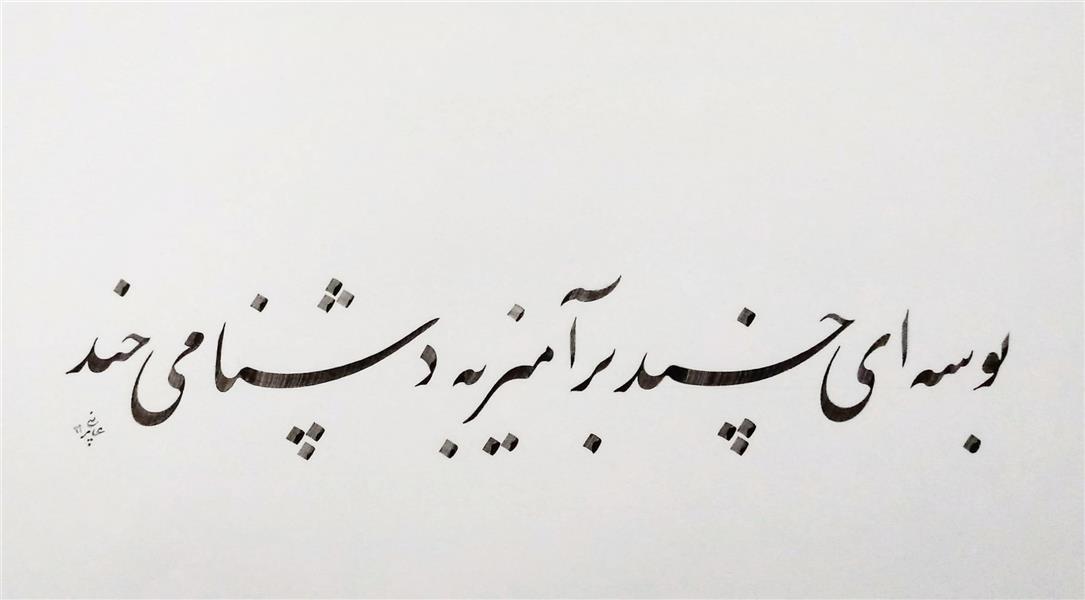 بوسه ای چند برآمیز به دشنامی چند